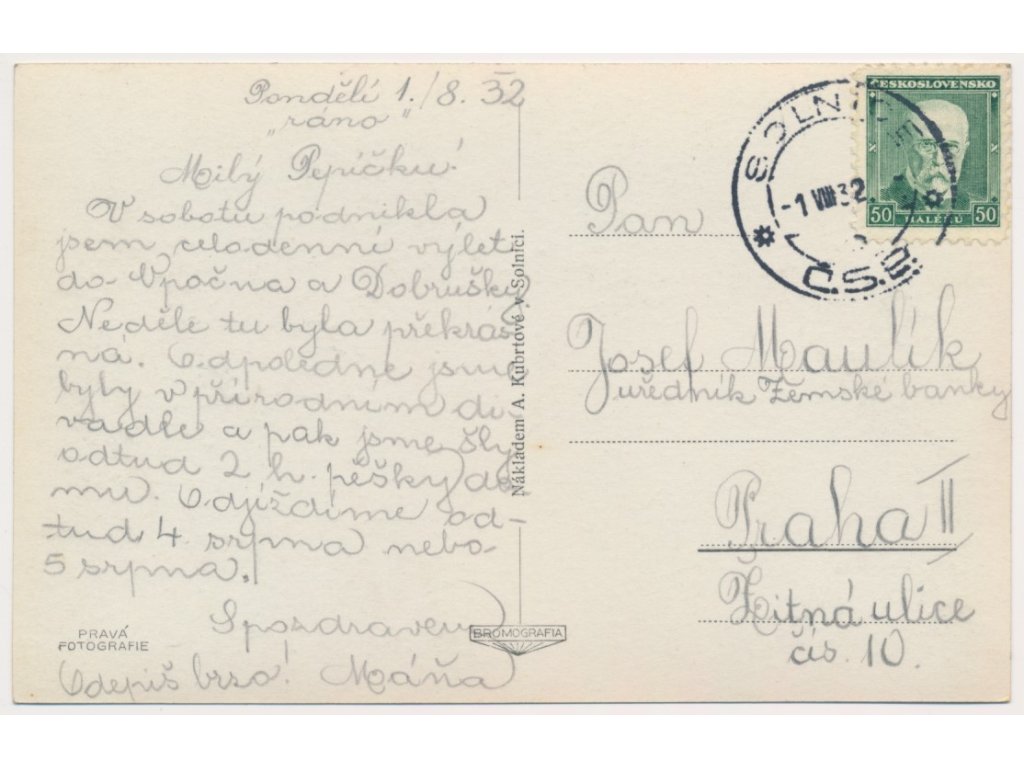 Pondělí 1./8. 32
"ráno"
Milý Pepíčku!
V sobotu podnikla
jsem celodenní výlet
do Opočna a Dobrušky.
Neděle tu byla překrás
ná. Odpoledne jsme
byly v přírodním di
vadle a pak jsme šly
odtud 2 h. pěšky do
mu. Odjíždíme od-
tud 4 srpna nebo
5 srpna.
S pozdravem
Odepiš brzo! Máňa
PRAVÁ
FOTOGRAFIE
BROMOGRAFIA
Nákladem A. Kubrtové v Solnici.
ČESKOSLOVENSKO
50 HALÉŘŮ 50
SOLNICE
-1 VIII 32
Č.S.R.
Pan
Josef Maulík
úředník Zemské banky
Praha II
Žitná ulice
čís. 10.